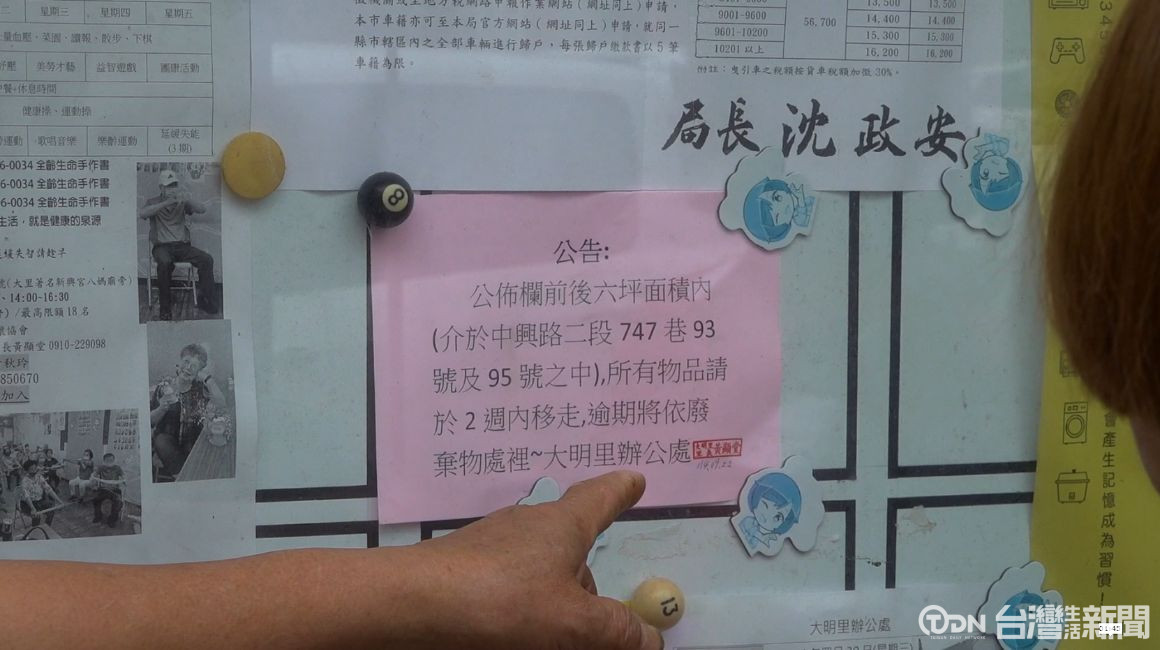 二 星期三 星期四 星期五
量血壓、菜園、讀報、散步、下棋
紓壓 美勞才藝 益智遊戲 團康活動
午餐+休息時間
健康操、運動操
運動 歌唱音樂 樂齡運動 延緩失能
(3期)
6-0034 全齡生命手作書
6-0034 全齡生命手作書
6-0034 全齡生命手作書
生活，就是健康的泉源
延緩失智請趁早
號(大里著名新興宮八媽廟旁)
、14:00-16:30
)/最高限額18名
懷協會
長黃顯堂 0910-229098
秋玲
850670
加入
徵機關或至地方稅網路申報作業網站（網址同上）申請，
本市車籍亦可至本局官方網站（網址同上）申請，就同一
縣市轄區內之全部車輛進行歸戶，每張歸戶繳款書以5筆
車籍為限。
9001-9600
9601-10200
10201以上
56,700
13,500 13,500
14,400 14,400
15,300 15,300
16,200 16,200
附註：曳引車之稅額按貨車稅額加徵30%。
局長 沈政安
8
公告:
公佈欄前後六坪面積內
(介於中興路二段 747 巷 93
號及 95 號之中),所有物品請
於 2 週內移走,逾期將依廢
棄物處裡~大明里辦公處
大明里
里長 黃顯堂
13
大明里辦公處
345
會產生記憶成為習慣
TDN 台灣生活新聞